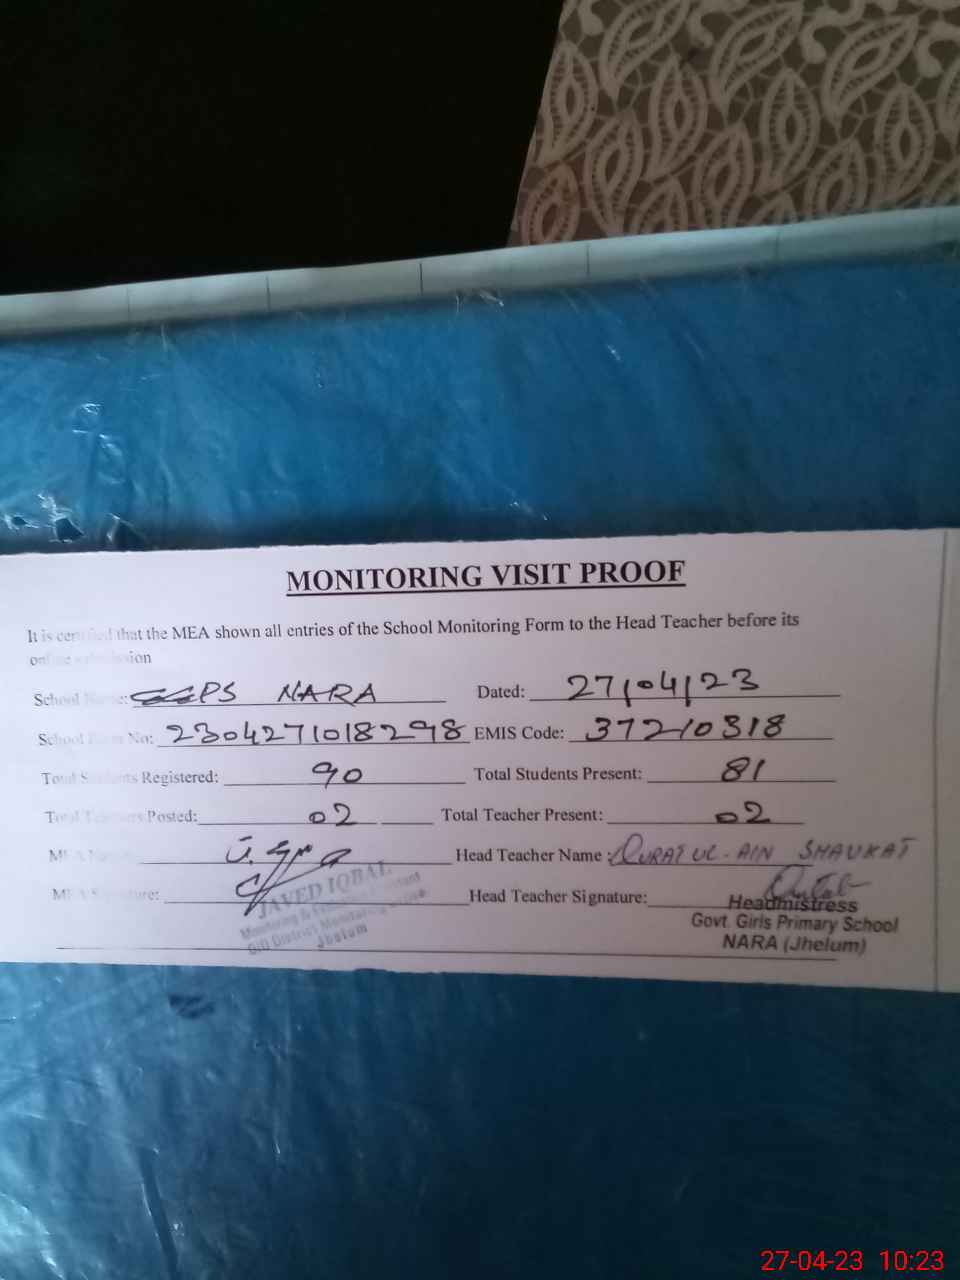 MONITORING VISIT PROOF
It is certified that the MEA shown all entries of the School Monitoring Form to the Head Teacher before its
online submission
School Name: GGPS NARA Dated: 27/04/23
School Form No: 230427101829８ EMIS Code: 37210318
Total Students Registered: 90 Total Students Present: 81
Total Teachers Posted: 02 Total Teacher Present: 02
MEA Name: Head Teacher Name: QURAT UL-AIN SHAUKAT
MEA Signature: Head Teacher Signature:
JAVED IQBAL
Monitoring & Evaluation Assistant
O/O District Monitoring
Jhelum
Headmistress
Govt. Girls Primary School
NARA (Jhelum)
27-04-23 10:23